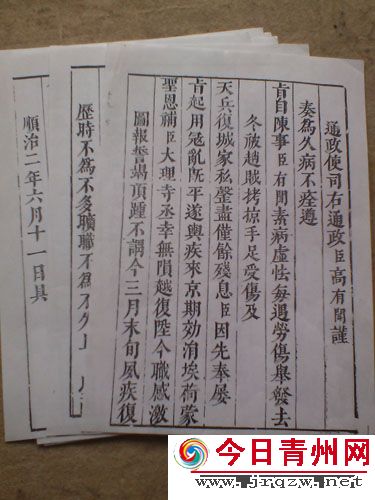 通政使司右通政臣高有聞謹
奏為久病不痊遵
旨自陳事臣有聞素病虛怯每遇勞傷舉發去
冬被趙賊拷掠手足受傷及
天兵復城家私罄盡僅餘殘息臣因先奉屡
旨起用冦亂既平遂輿疾來京期効涓埃荷蒙
聖恩補臣大理寺丞幸無隕越復陞今職感激
圖報誓竭頂踵不謂今三月末旬風疾復
歷時不為不多曠職不為不久
順治二年六月十一日具
今日青州网
www.jrqzw.net